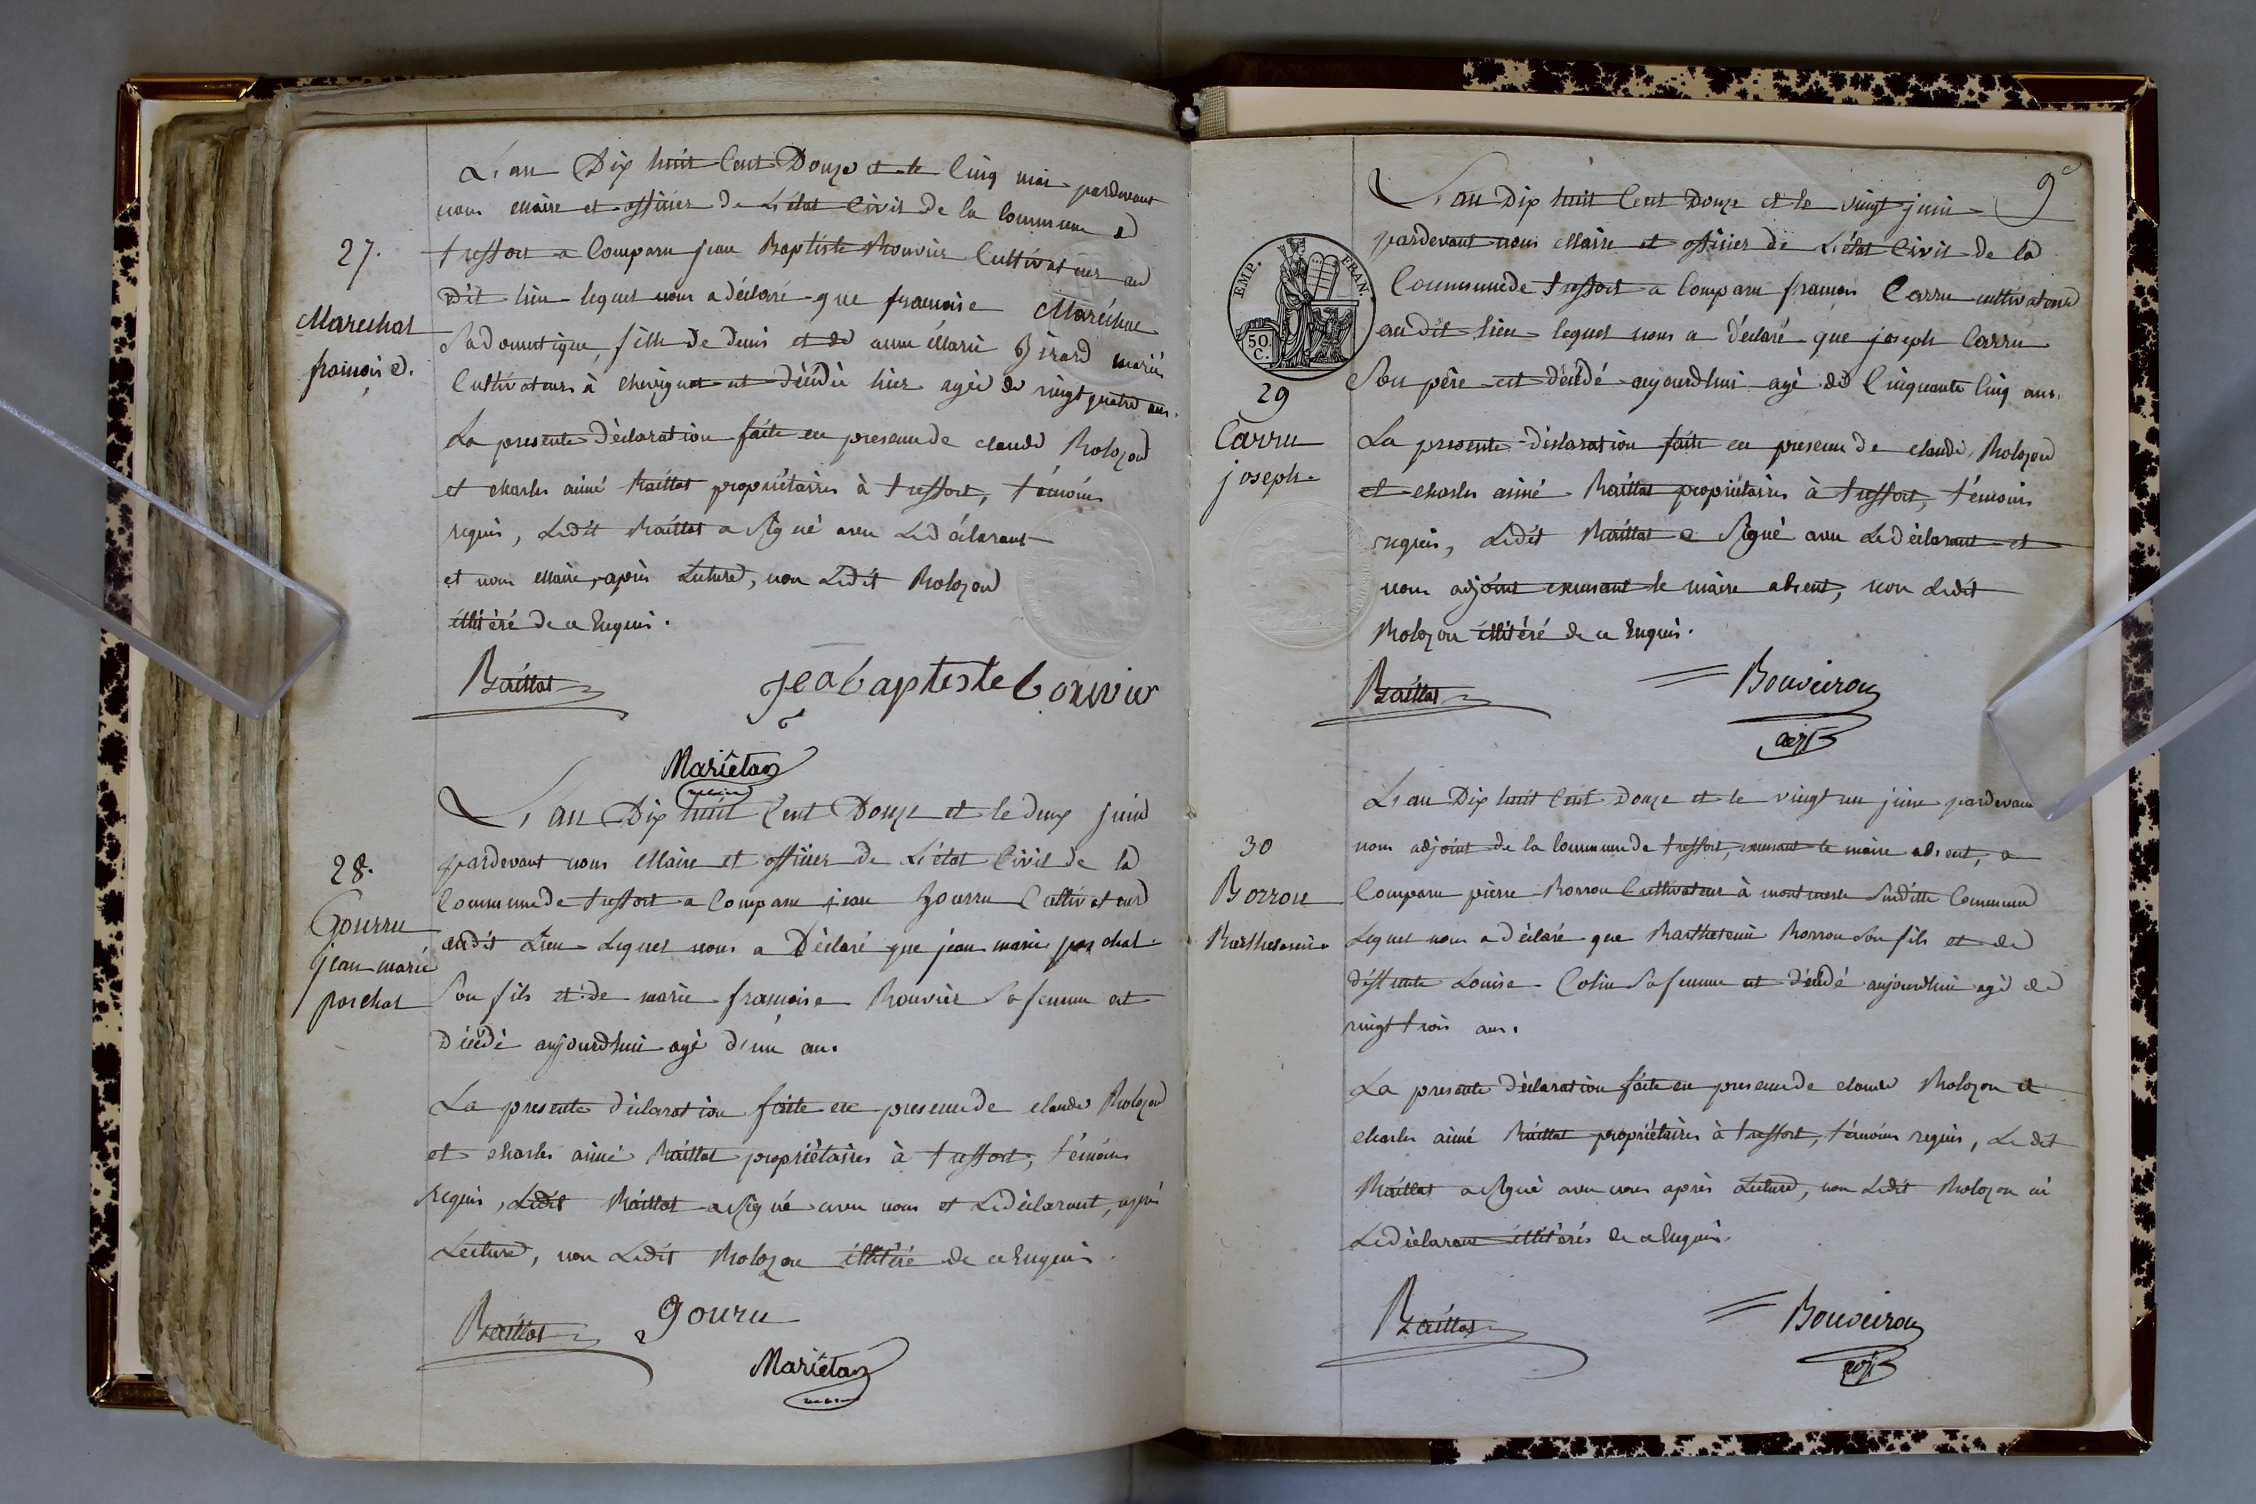 27.
Marechal
françoise.
L'an Dix huit Cent Douze et le Cinq mai pardevant
nous Maire et officier de L'état Civil de la Commune de
treffort a Comparu jean Baptiste Bouvier Cultivateur au
dit lieu lequel nous a déclaré que françoise Maréchal
Sa domestique, fille de denis et de anne Marie Girard mariés
Cultivateurs à chevignat est décédée hier agée de vingt quatre ans.
La presente déclaration faite en presence de claude Bolozon
et charles aimé Baillat propriétaires à treffort, témoins
requis, Ledit Baillat a Signé avec Le déclarant
et nous Maire, après Lecture, non Ledit Bolozon
illitéré de ce Enquis.
Baillat
jea baptiste bouvier
Mariétan
maire
28.
Gourru
jean marie
porchat
L'an Dix huit Cent Douze et le deux juin
pardevant nous Maire et officier de L'état Civil de la
Commune de treffort a Comparu jean Gourru Cultivateur
audit Lieu Lequel nous a Déclaré que jean marie porchat
Son fils et de marie françoise Bouvier Sa femme est
Décédé aujourdhui agé d'un an.
La presente déclaration faite en presence de claude Bolozon
et charles aimé Baillat propriétaires à treffort, témoins
requis, Ledit Baillat a Signé avec nous et Le déclarant, après
Lecture, non Ledit Bolozon illitéré de ce Enquis.
Baillat
gouru
Mariétan
maire
9e
EMP. FRAN.
50
C.
29
Carru
joseph.
L'an Dix huit Cent Douze et le vingt juin
pardevant nous Maire et officier de L'état Civil de la
Commune de treffort a Comparu françois Carru cultivateur
audit lieu lequel nous a déclaré que joseph Carru
Son père est décédé aujourdhui agé de Cinquante Cinq ans.
La presente déclaration faite en presence de claude Bolozon
et charles aimé Baillat propriétaires à treffort, témoins
requis, Ledit Baillat a Signé avec Le déclarant et
nous adjoint exerçant le maire absent, non Ledit
Bolozon illitéré de ce Enquis.
Baillat
Bouveiron
adjt
30
Borron
Barthelemi.
L'an Dix huit Cent Douze et le vingt un juin pardevant
nous adjoint de la Commune de treffort, exerçant le maire absent, a
Comparu pierre Borron Cultivateur à montmerle Susditte Commune
Lequel nous a déclaré que Barthelemi Borron Son fils et de
déffunte Louise Colin Sa femme est décédé aujourdhui agé de
vingt trois ans.
La presente déclaration faite en presence de claude Bolozon et
charles aimé Baillat propriétaires à treffort, témoins requis, Le dit
Baillat a Signé avec nous après Lecture, non Ledit Bolozon ni
Le déclarant illitérés de ce Enquis.
Baillat
Bouveiron
adjt